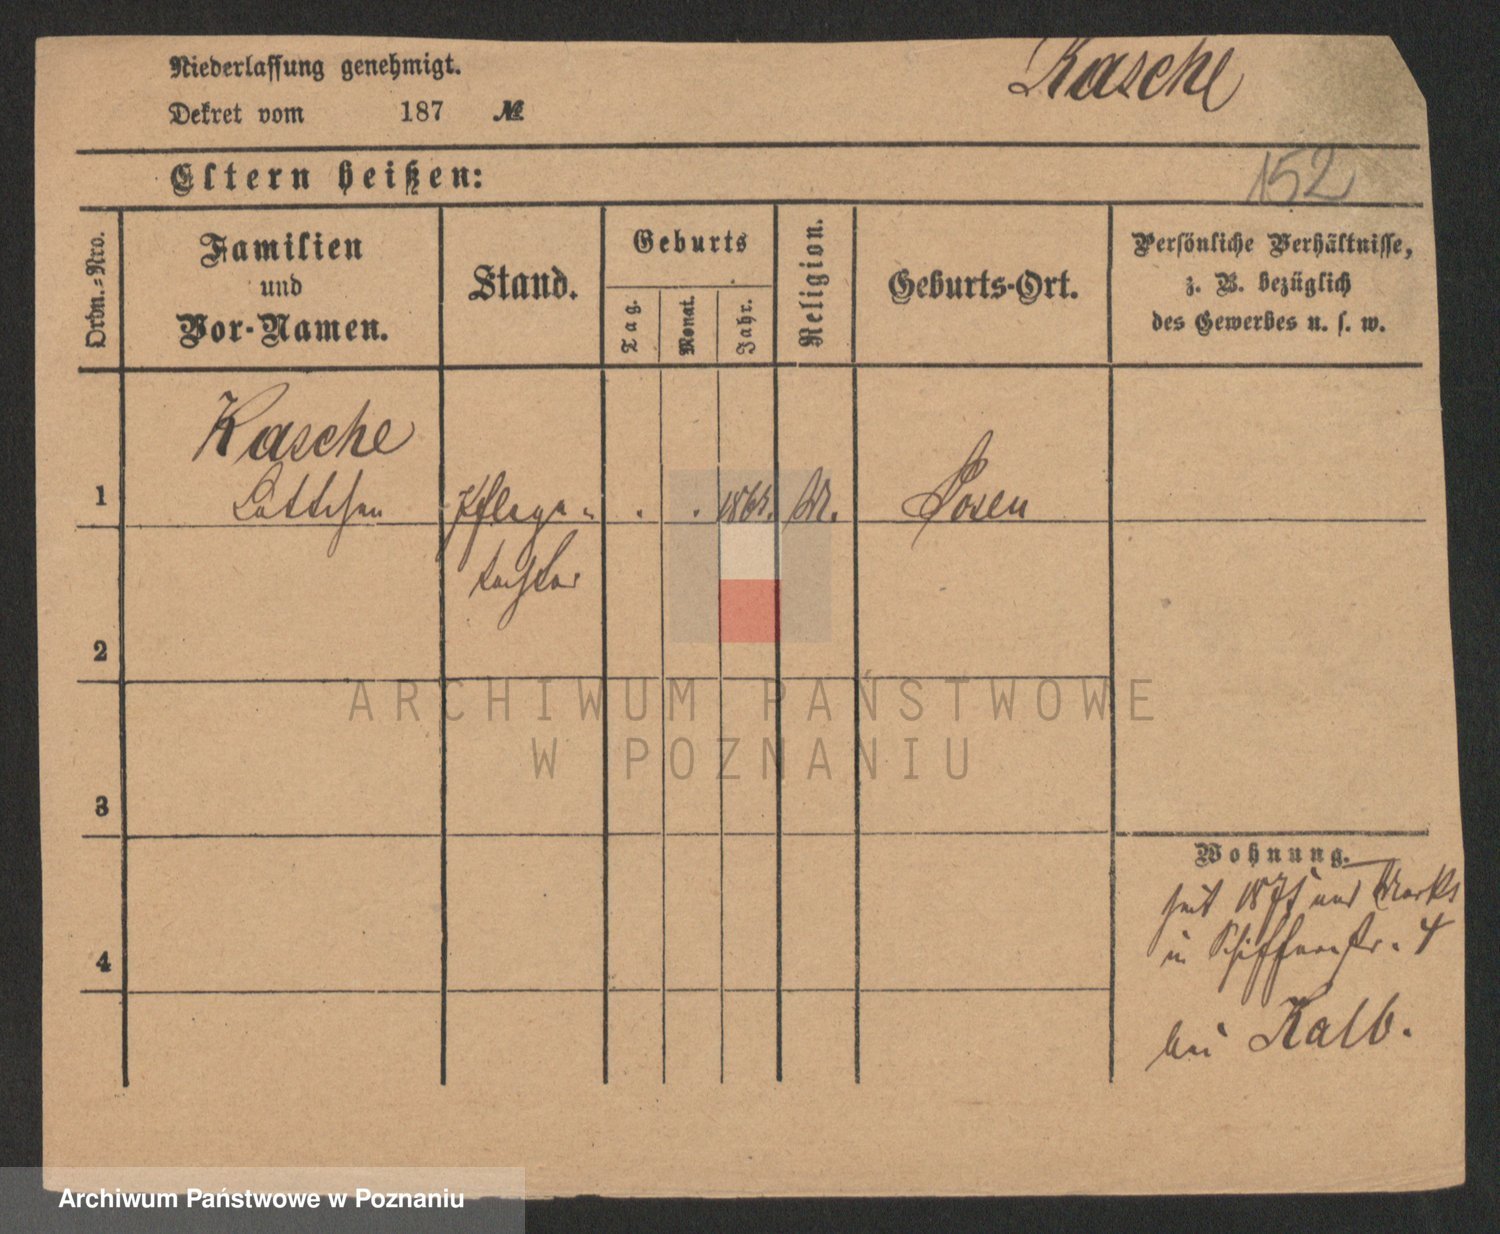 Niederlassung genehmigt.
Kasche
Dekret vom 187 №
152
Eltern heißen:
Ordn.=Nro.
Familien
und
Vor-Namen.
Stand.
Geburts
Tag.
Monat.
Jahr.
Religion.
Geburts-Ort.
Persönliche Verhältnisse,
z. B. bezüglich
des Gewerbes u. s. w.
Kasche
1 Lottchen Pflege- Posen
tochter
2
3
4
Wohnung.
seit 187
in Schifferstr. 4
bei Kalb.
ARCHIWUM PAŃSTWOWE
W POZNANIU
Archiwum Państwowe w Poznaniu